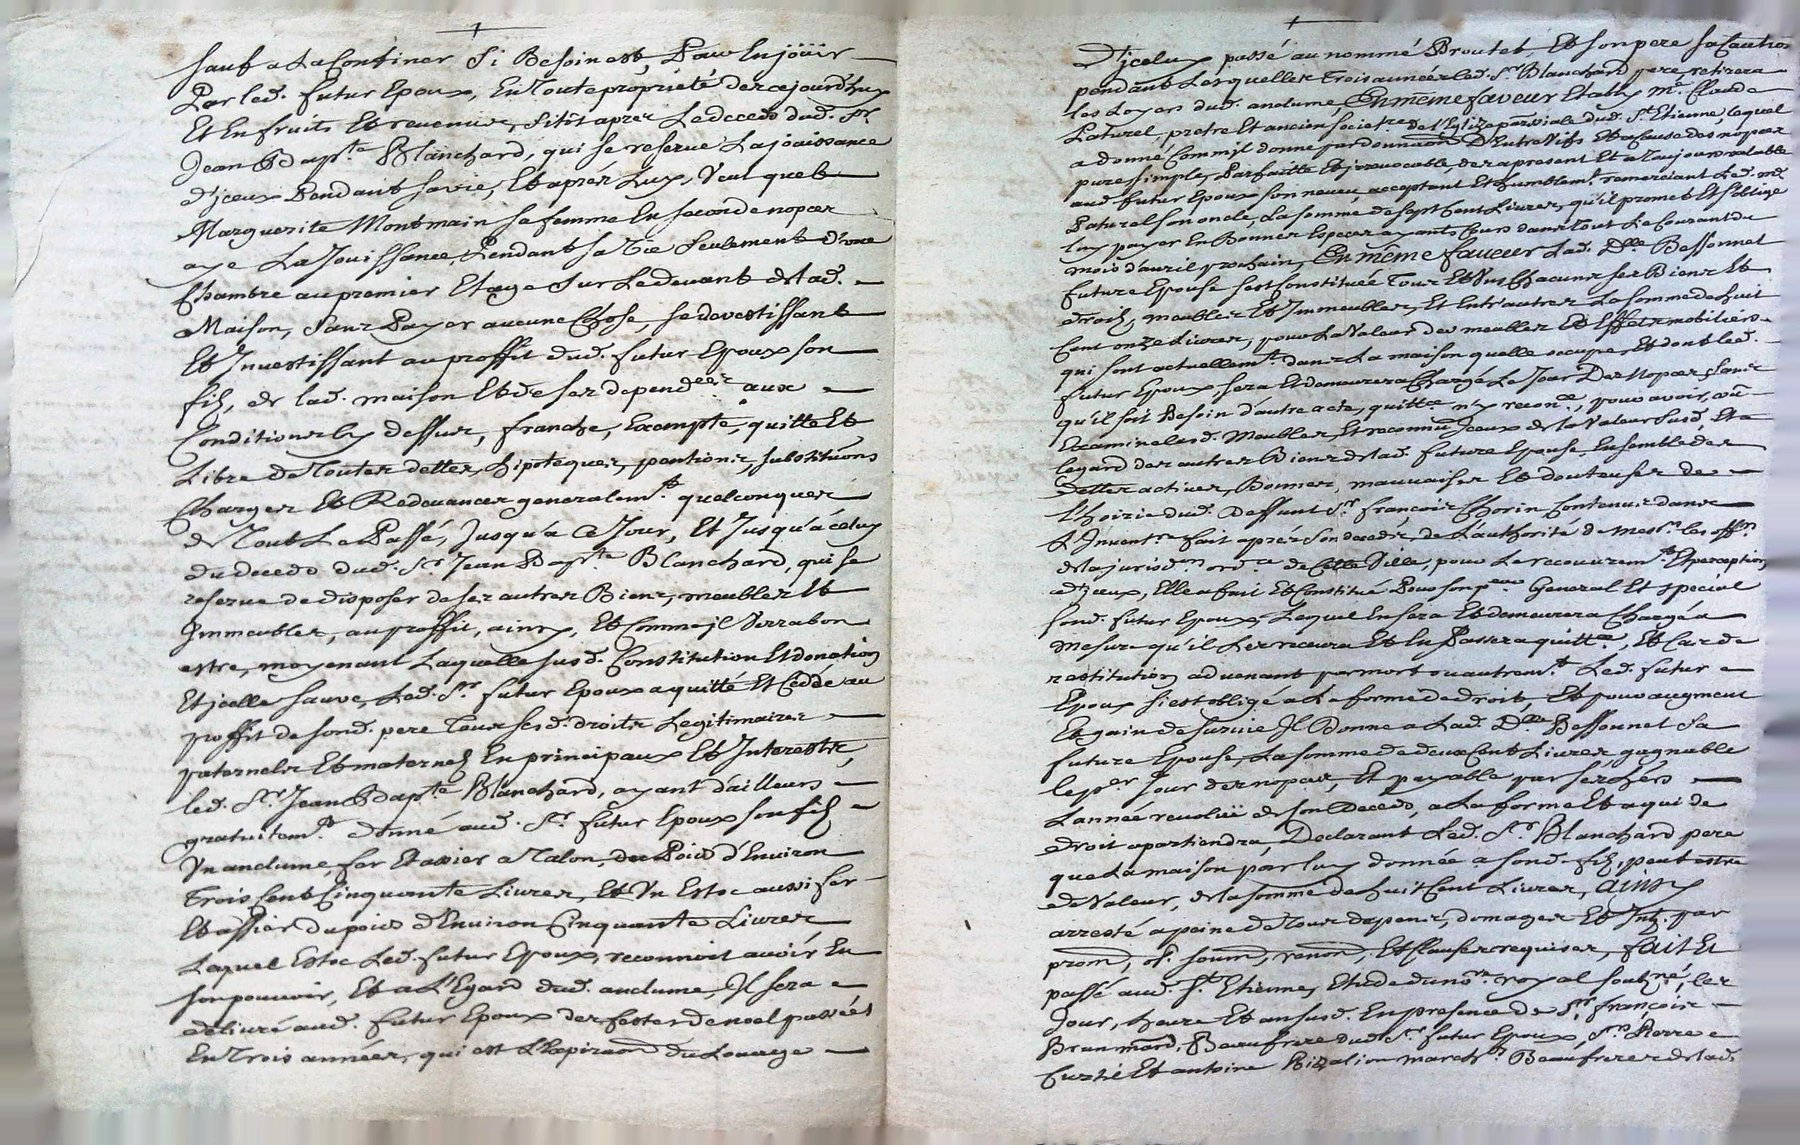 sauf a La Confiner Si Besoin est, Pour En jöüir
Par led. futur Epoux, En Toute propriété dez ce jourd'huy
Et En fruits Et revenus, sitôt aprez Le decedz dud. Sr
Jean Bapte Blanchard, qui se reserve La joüissance
d'jceux Pendant sa vie, Et aprez Luy, Veut que lad.
Marguerite Montmain sa femme En seconde nopces
aye La Jouissance, Pendant sa Vie Seulement d'vne
Chambre au premier Etage Sur Le devant de lad.
Maison, Sans Payer aucune Chose, se devestissant
Et Jnvestissant au proffit dud. futur Epoux son
filz, de lad. maison Et de ses dependces aux
Conditions Cy dessus, franche, Exempte, quitte Et
Libre de Toutes dettes, hipoteques, pentions, substitutions
Charges Et Redevances generalemt. quelconques
de Tout Le Passé, Jusqu'à Ce Jour, Et Jusqu'à celuy
du decedz dud. Sr Jean Bapte Blanchard, qui se
reserve de disposer de ses autres Biens, meubles Et
Jmmeubles, au proffit, ainsy, Et Comme jl Verra bon
estre, moyenant Laquelle susd. Constitution Et donation
Et jcelle sauve, Led. Sr futur Epoux a quitté Et Cédé au
proffit de sond. pere Tous sesd. droits Legitimaires
paternels Et maternelz En principaux Et Jnterestz,
led. Sr Jean Bapte Blanchard, ayant d'ailleurs
gratuitemt. donné aud. Sr futur Epoux son filz
Vn anclume, fer Et assier a Talon, du Poidz d'Environ
Trois Cent Cinquante Livres, Et Vn Estoc aussi fer
Et assier du poidz d'Environ Cinquante Livres
Laquel Estoc Led. futur Epoux, reconnoit avoir En
son pouvoir, Et a L'Egard dud. anclume, Jl sera
delivré aud. futur Epoux dez festes de noel passées
En Trois années, qui est L'Expiraon du Louage
d'jceluy passé au nommé Broutet, Et son pere sa Caution
pendant Lesquelles Trois années led. Sr Blanchard pere, retirera
les Loyers dud. anclume, En même faveur Etably Mre Claude
Paturel, pretre Et ancien Societre de l'Eglize paroisiale dud. St Etienne, Lequel
a donné Comm'jl donne par donnaon D'Entre Vifs Et a Cause des nopces
pure simple, Parfaitte Et jrrevocable, dez a present Et a Toujours valable
aud. futur Epoux son neveu, acceptant Et humblemt. remerciant Led. Mre
Paturel son oncle, La somme de sept Cent Livres, qu'il promet Et s'oblige
luy payer En Bonnes Especes ayants Cours dans Tout Le Courant du
mois d'avril prochain, En même faveur Lad. Dlle Bessonnet
future Epouse s'est Constituée Tous Et Vns Chacuns ses Biens Et
droits, meubles Et Jmmeubles, Et Entr'autres La somme de huit
Cent onze Livres, pour La Valeur des meubles Et Effets mobiliers
qui sont actuellemt. dans La maison quelle occupe, Et dont led.
futur Epoux, sera Et demeurera Chargé Le Jour Des Nopces, Sans
qu'il soit Besoin d'autre acte, quittce n'y reconce, pour avoir, vû
Examiné lesd. Meubles, Et reconnu jceux de la Valeur Susd., Et a
legard des autres Biens de lad. future Epouse, Ensemble des
dettes actives, Bonnes, mauvaises Et douteuses de
l'hoirie dud. Deffunt Sr françois Chorin Contenus dans
L'Jnventre fait apres son decedz, de L'authorité de Messrs les offrs
de la jurisdon ordre de Cette Ville, pour Le recouvremt. Et perception
d'jceux, Elle a fait Et Constitué Pour son peur General Et special
sond. futur Epoux, Lequel En sera Et demeurera Chargé a
Mesure qu'il Les recevra Et En Passera quittce, Et Cas de
restitution advenant par mort ou autremt. Led. futur
Epoux s'est obligé a La forme de droit, Et pour augment
Et gain de survie Jl Donne a Lad. Dlle Bessonnet sa
future Epouse, La somme de deux Cent Livres, gagnable
le per Jour des nopces, Et payable par ses hers
L'année revoluë de son Decedz, a La forme Et a qui de
droit apartiendra, Declarant Led. Sr Blanchard pere
que La maison par luy donnée a sond. filz, peut estre
de Valeur, de la somme de huit Cent Livres, Ainsy
arresté a peine de Tous depens, domages Et Jntz. par
prom, ob. soum, renon, Et Clauses requises, fait Et
passé aud. St. Etienne, Etude du nore royal soubzné, les
Jour, heure Et an susd. En presence de Sr. françois
Brunmard, Beaufrere dud. Sr futur Epoux, Srs Pierre
Curtié Et antoine Bizalion march. Beaufreres de lad.